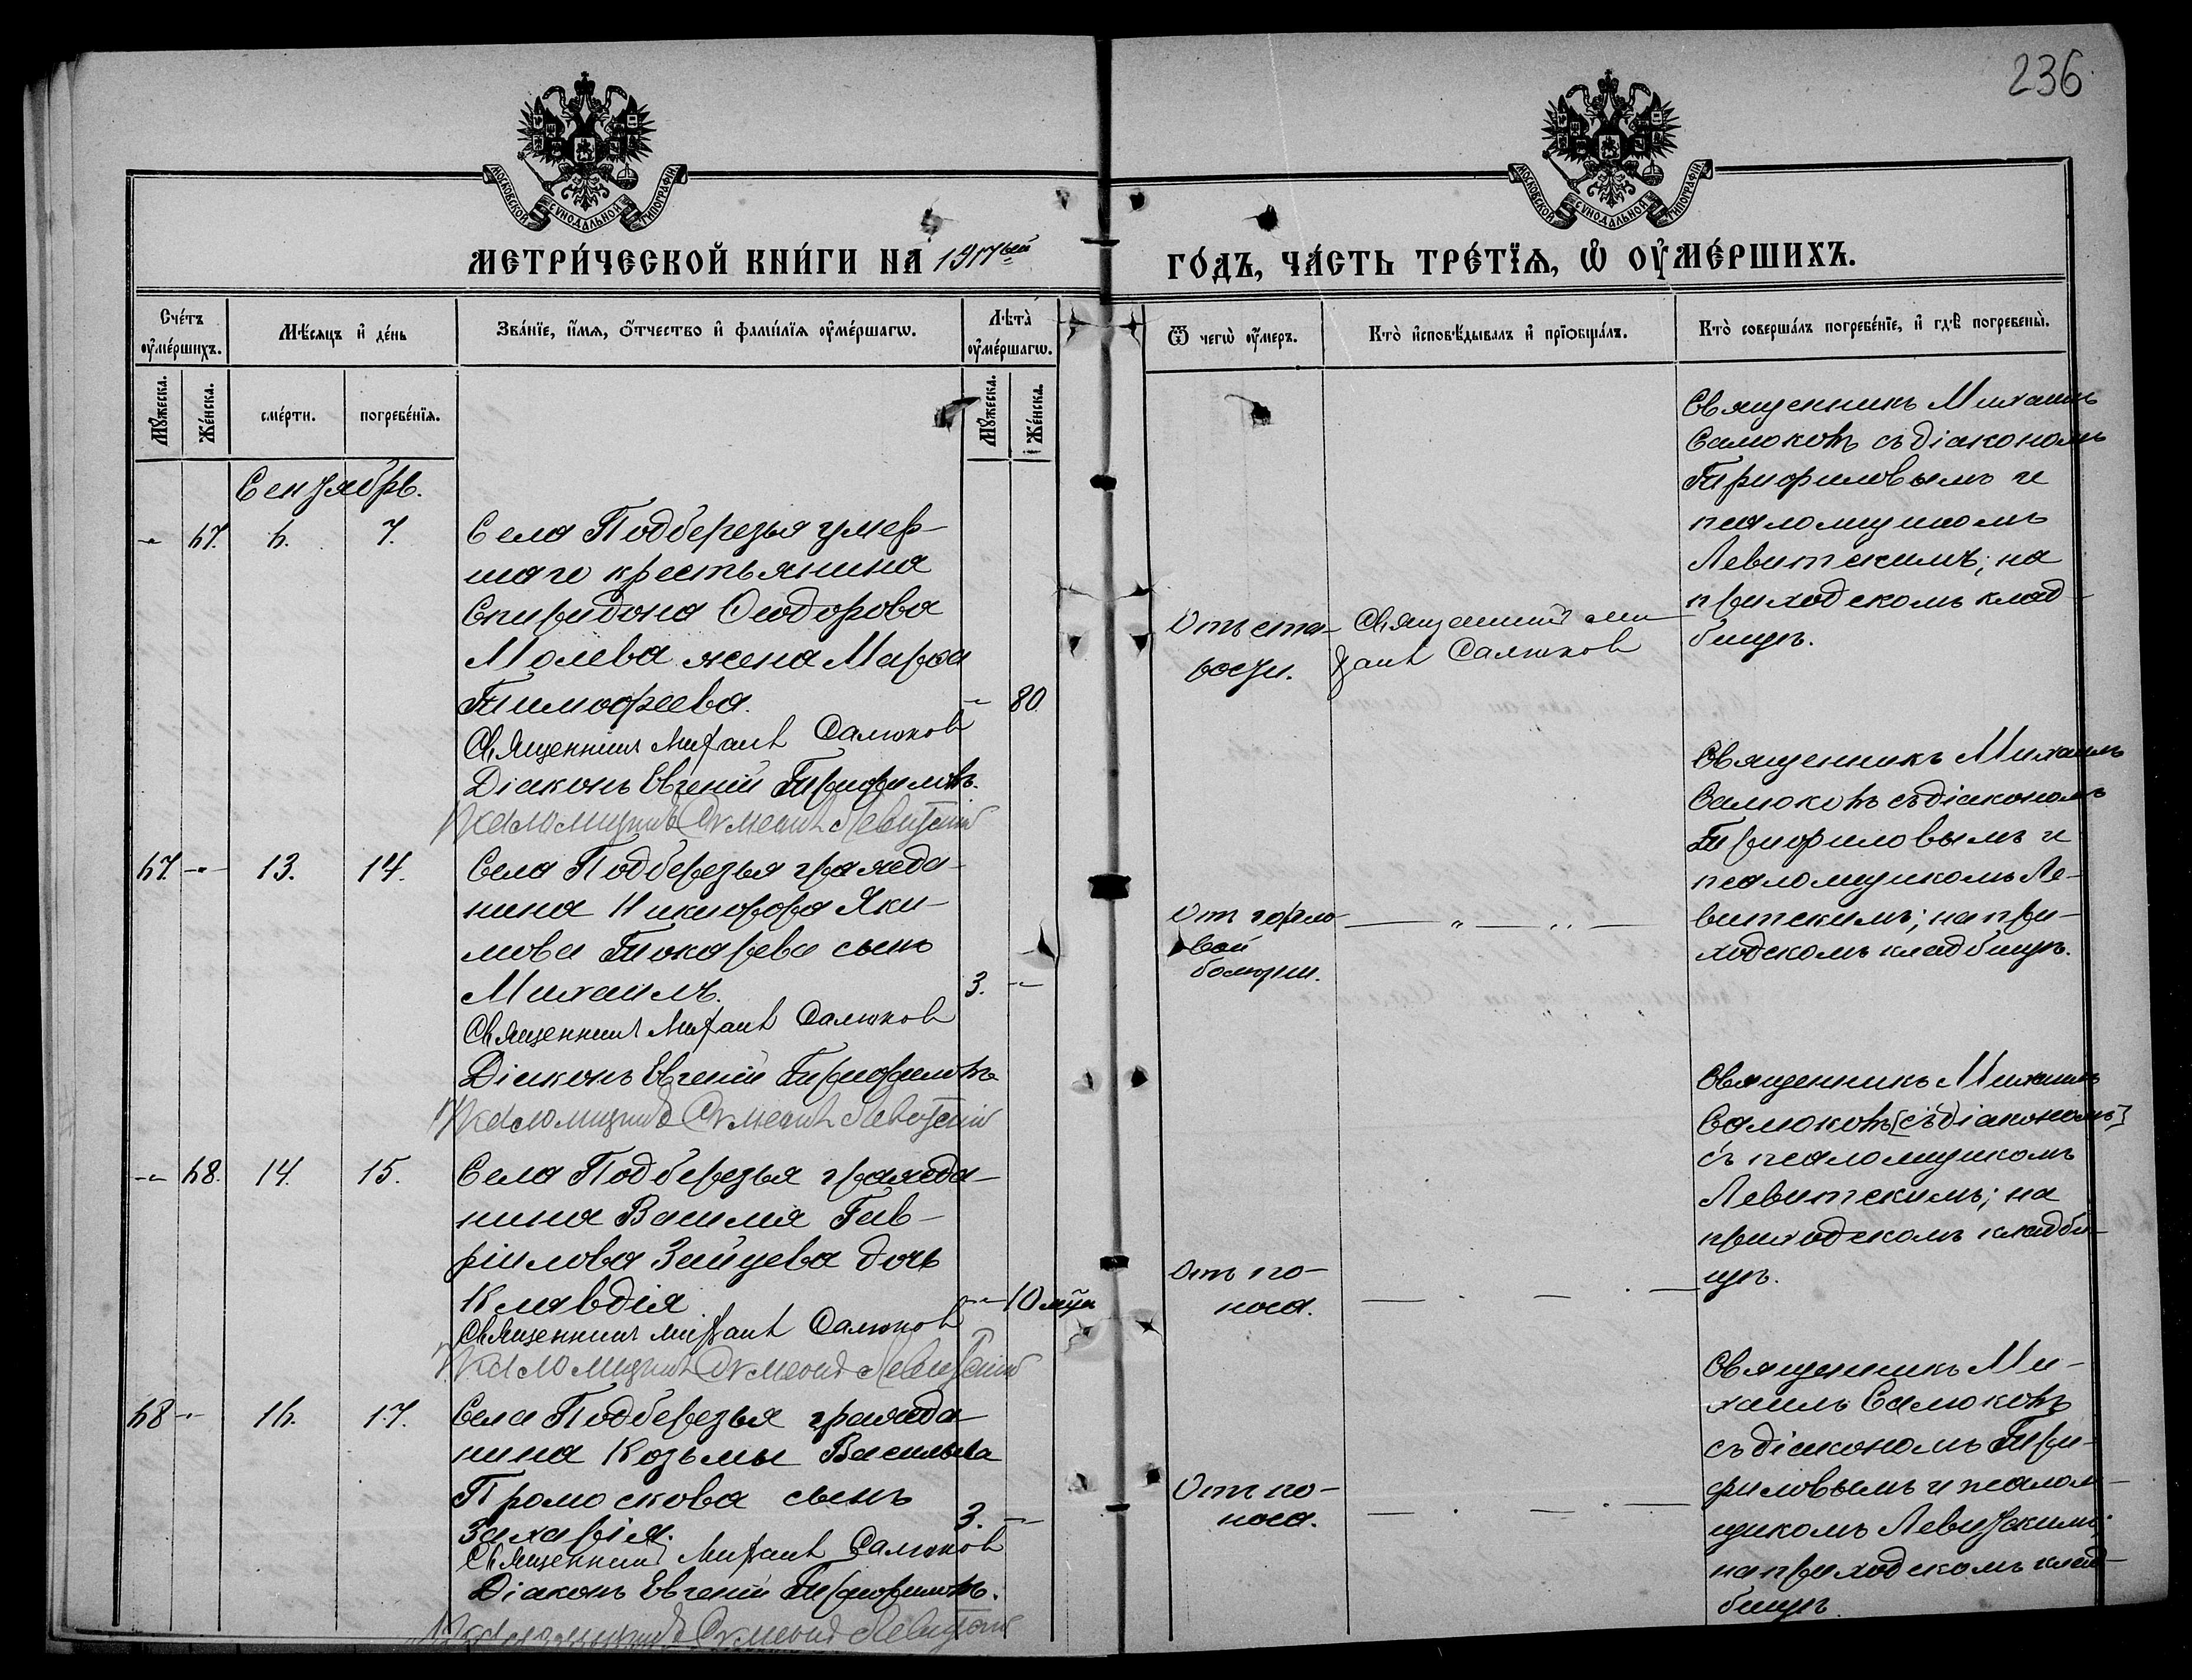 236
МОСКОВСКОЙ СУНОДАЛЬНОЙ ТИПОГРАФІИ
МОСКОВСКОЙ СУНОДАЛЬНОЙ ТИПОГРАФІИ
МЕТРИ́ЧЕСКОЙ КНИ́ГИ НА 1917ый
ГО́ДЪ, ЧА́СТЬ ТРЕ́ТЇѦ, Ѡ ОУ҆МЕ́РШИХЪ.
Сче́тъ оу҆ме́ршихъ.
Мѣ́сяцъ и҆ де́нь
Зва́нїе, и҆́мѧ, ѻ҆́тчество и҆ фами́лїѧ оу҆ме́ршагѡ.
Лѣта̀ оу҆ме́ршагѡ.
Ѿ чегѡ̀ оу҆́меръ.
Кто̀ и҆сповѣ́дывалъ и҆ прїѡбща́лъ.
Кто̀ соверша́лъ погребе́нїе, и҆ гдѣ̀ погребены̀.
Му́жеска.
Же́нска.
сме́рти.
погребе́нїѧ.
Му́жеска.
Же́нска.
Сентябрь.
-„- 67. 6. 7.
Села Подберезья умер-
шаго крестьянина
Спиридона Ѳеодорова
Молева жена Марѳа
Тимоѳеева.
-„- 80.
Священникъ Михаилъ Самоковъ
Діаконъ Евгеній Трифиловъ.
Псаломщикъ Левитскій
Отъ ста-
рости.
Священникъ Ми-
хаилъ Самоковъ
Священникъ Михаилъ
Самоковъ съ діакономъ
Трифиловымъ и
псаломщикомъ
Левитскимъ; на
приходскомъ клад-
бищѣ.
67. -„- 13. 14.
Села Подберезья гражда-
нина Никифора Яки-
мова Токарева сынъ
Михаилъ.
3. -„-
Священникъ Михаилъ Самоковъ
Діаконъ Евгеній Трифиловъ
Псаломщикъ Левитскій
От горло-
вой
болезни.
— „ — „ —
Священникъ Михаилъ
Самоковъ съ діакономъ
Трифиловымъ и
псаломщикомъ Ле-
витскимъ; на при-
ходскомъ кладбищѣ.
-„- 68. 14. 15.
Села Подберезья гражда-
нина Василія Гав-
ріилова Зайцева дочь
Клавдія
-„- 10 м-ци
Священникъ Михаилъ Самоковъ
Псаломщикъ Левитскій
Отъ по-
носа.
— . — . —
Священникъ Михаилъ
Самоковъ [съ діакономъ]
съ псаломщикомъ
Левитскимъ; на
приходскомъ кладби-
щѣ.
68 -„- 16. 17.
Села Подберезья гражда-
нина Козьмы Васильева
Промоскова сынъ
Захарія.
3. -„-
Священникъ Михаилъ Самоковъ
Діаконъ Евгеній Трифиловъ.
Псаломщикъ Левитскій
Отъ по-
носа.
— . — . —
Священникъ Ми-
хаилъ Самоковъ
съ діакономъ Три-
филовымъ и псалом-
щикомъ Левитскимъ;
на приходскомъ клад-
бищѣ.